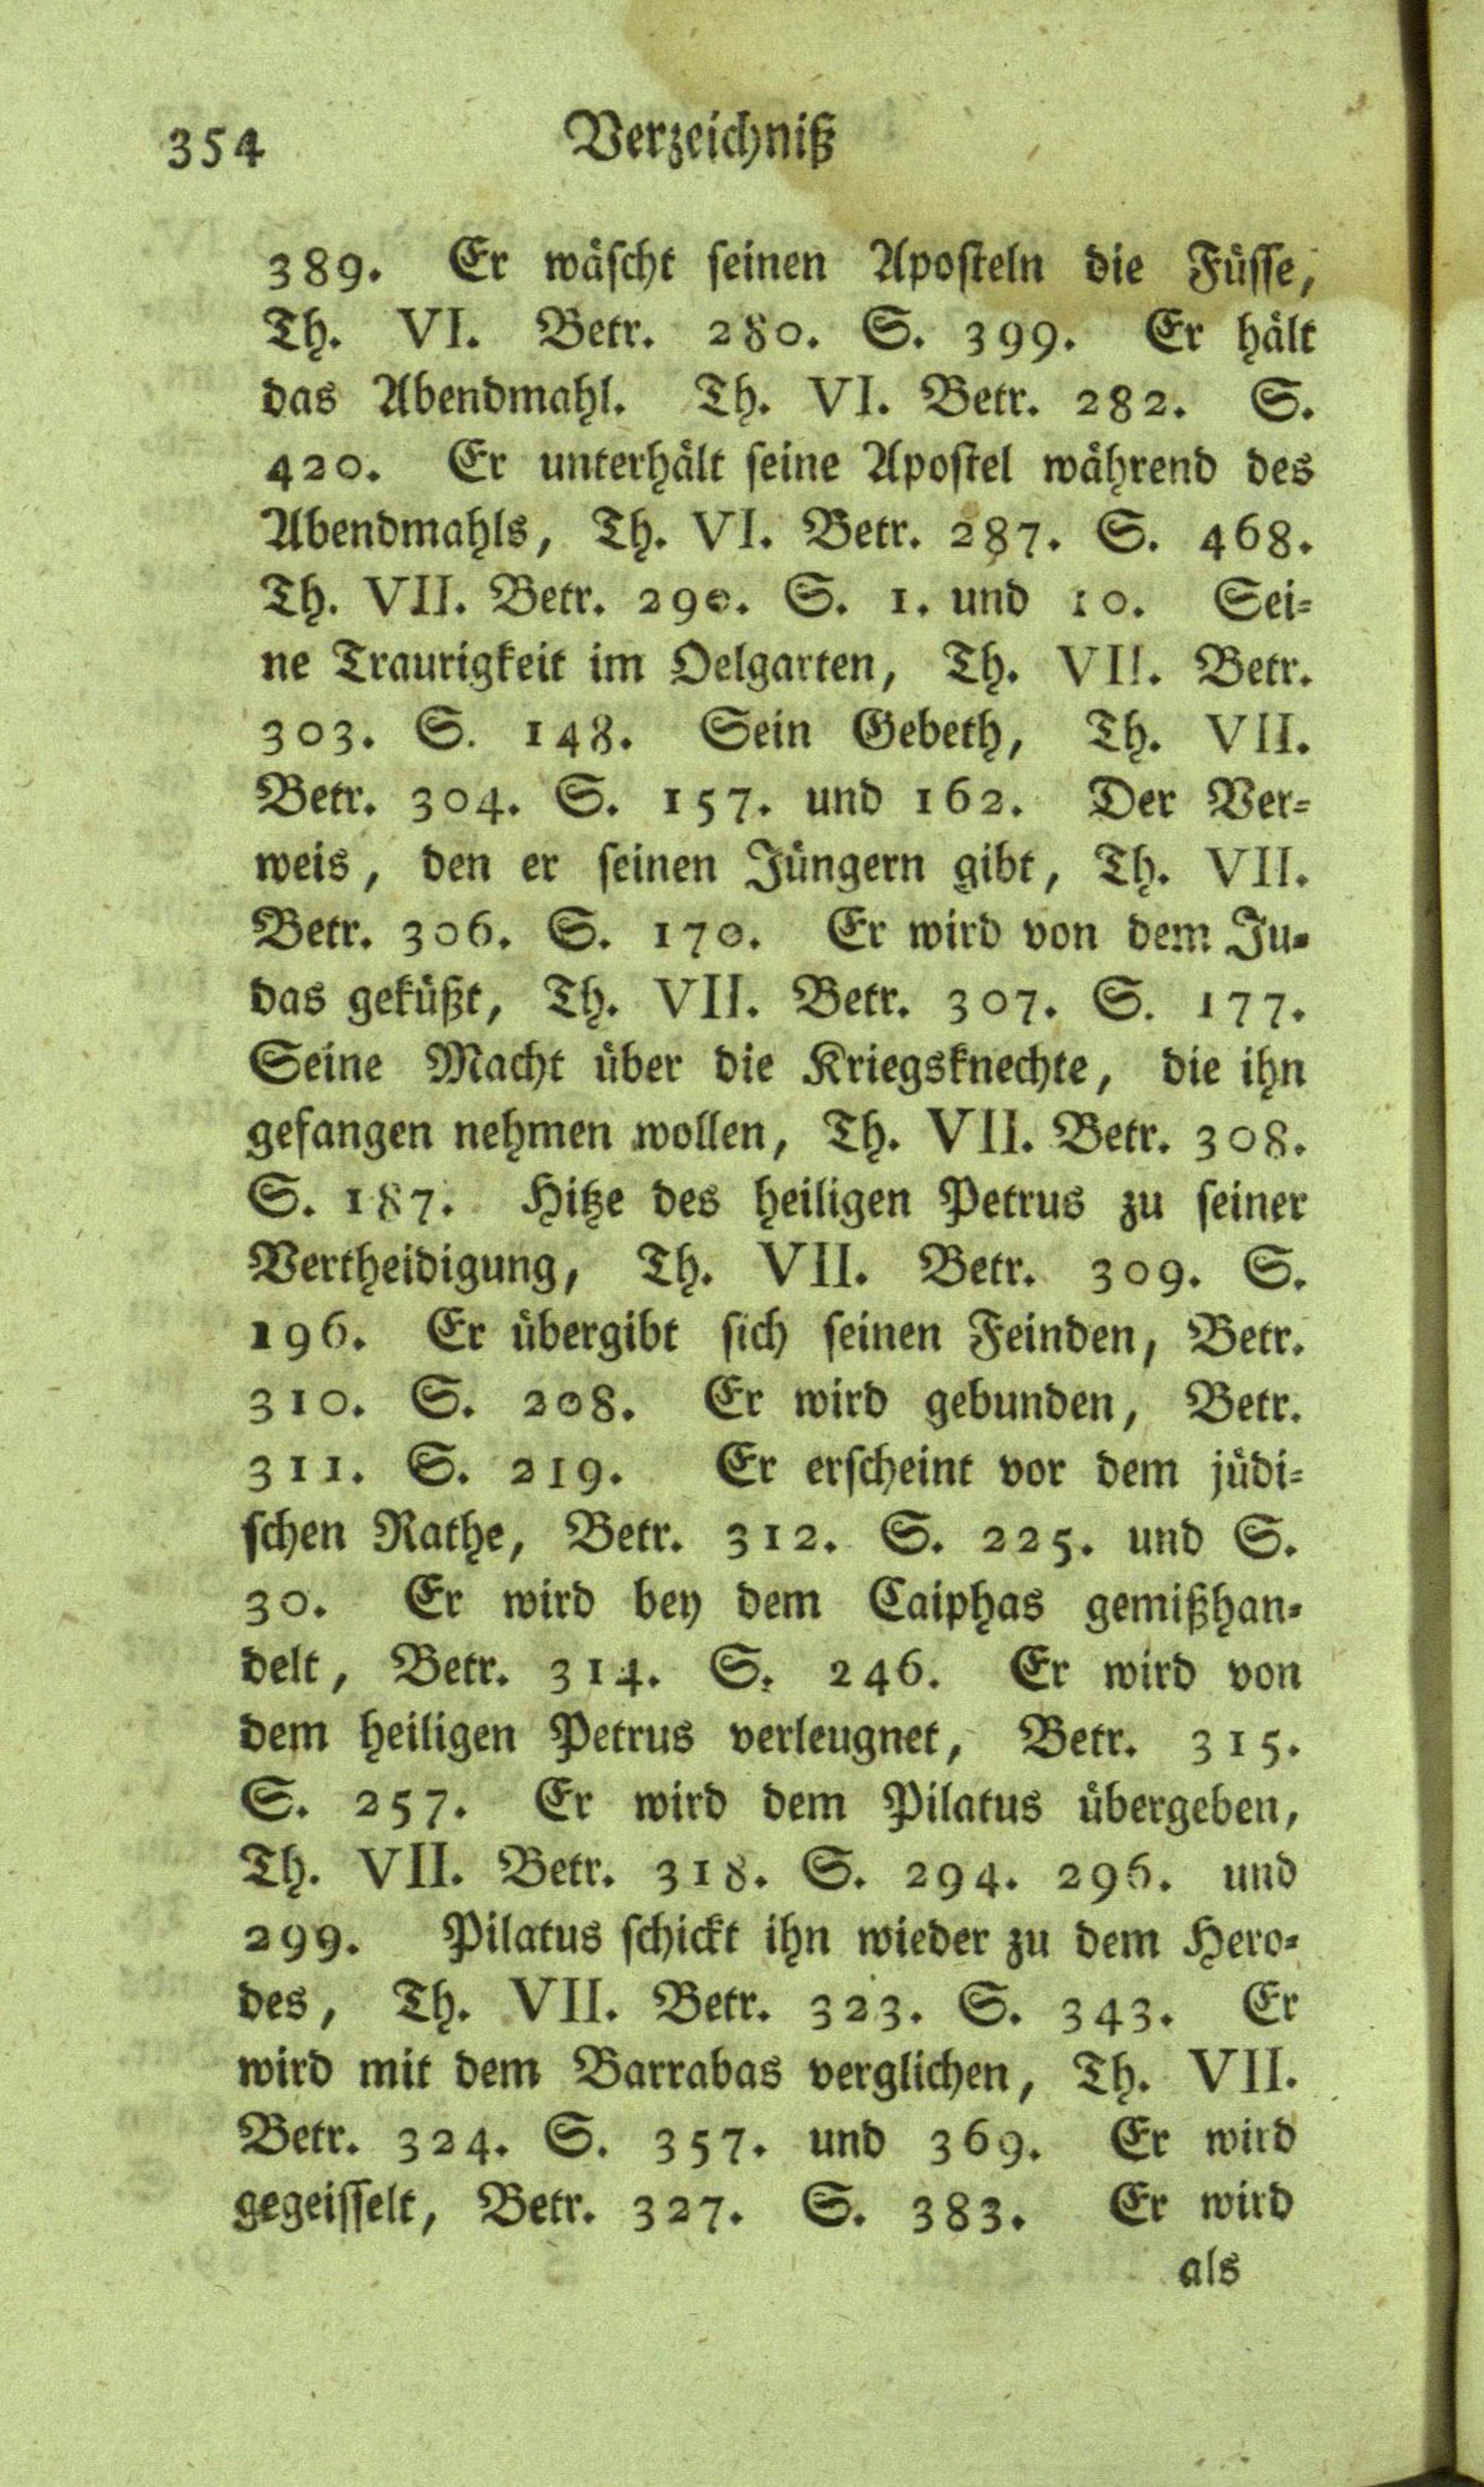 354 Verzeichniß
389. Er wäscht seinen Aposteln die Füsse,
Th. VI. Betr. 280. S. 399. Er hält
das Abendmahl. Th. VI. Betr. 282. S.
420. Er unterhält seine Apostel während des
Abendmahls, Th. VI. Betr. 287. S. 468.
Th. VII. Betr. 290. S. 1. und 10. Sei-
ne Traurigkeit im Oelgarten, Th. VII. Betr.
303. S. 148. Sein Gebeth, Th. VII.
Betr. 304. S. 157. und 162. Der Ver-
weis, den er seinen Jüngern gibt, Th. VII.
Betr. 306. S. 170. Er wird von dem Ju-
das geküßt, Th. VII. Betr. 307. S. 177.
Seine Macht über die Kriegsknechte, die ihn
gefangen nehmen wollen, Th. VII. Betr. 308.
S. 187. Hitze des heiligen Petrus zu seiner
Vertheidigung, Th. VII. Betr. 309. S.
196. Er übergibt sich seinen Feinden, Betr.
310. S. 208. Er wird gebunden, Betr.
311. S. 219. Er erscheint vor dem jüdi-
schen Rathe, Betr. 312. S. 225. und S.
30. Er wird bey dem Caiphas gemißhan-
delt, Betr. 314. S. 246. Er wird von
dem heiligen Petrus verleugnet, Betr. 315.
S. 257. Er wird dem Pilatus übergeben,
Th. VII. Betr. 318. S. 294. 296. und
299. Pilatus schickt ihn wieder zu dem Hero-
des, Th. VII. Betr. 323. S. 343. Er
wird mit dem Barrabas verglichen, Th. VII.
Betr. 324. S. 357. und 369. Er wird
gegeisselt, Betr. 327. S. 383. Er wird
als